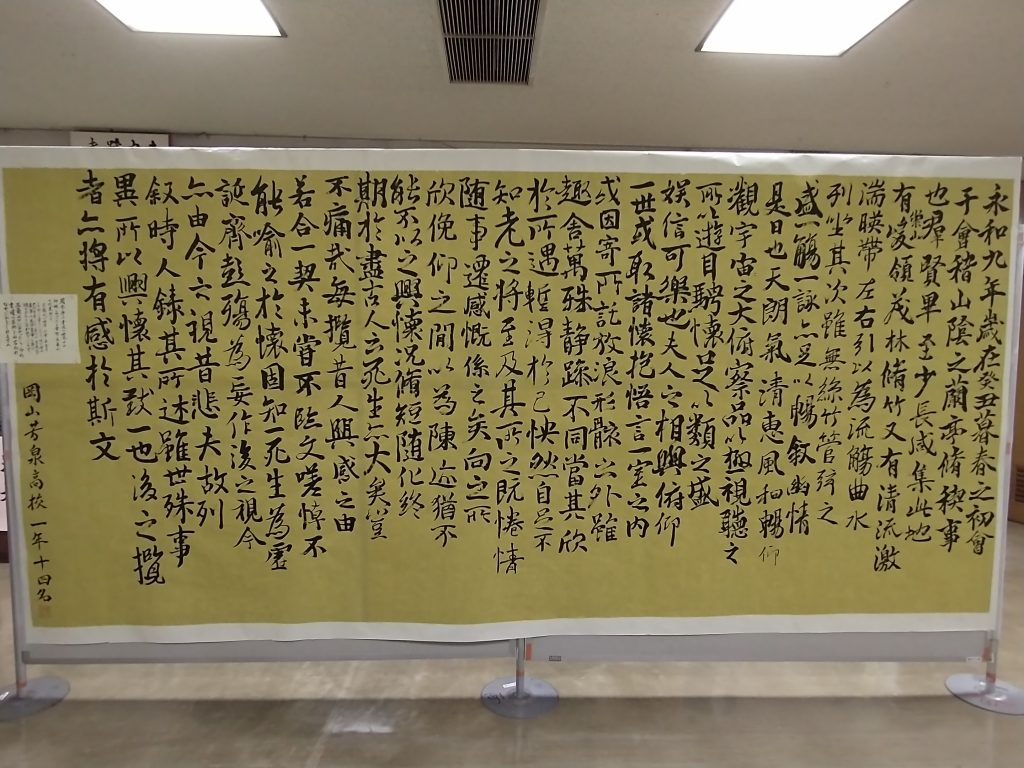 永和九年歳在癸丑暮春之初會
于會稽山陰之蘭亭脩稧事
也羣賢畢至少長咸集此地
有崇山峻領茂林脩竹又有清流激
湍暎帶左右引以為流觴曲水
列坐其次雖無絲竹管弦之
盛一觴一詠亦足以暢敘幽情
是日也天朗氣清恵風和暢仰
觀宇宙之大俯察品以極視聽之
所以遊目騁懷足以類之盛
娯信可樂也夫人之相與俯仰
一世或取諸懷抱悟言一室之内
或因寄所託放浪形骸之外雖
趣舎萬殊静躁不同當其欣
於所遇蹔得於己怏然自足不
知老之將至及其所之既惓情
随事遷感慨係之矣向之所
欣俛仰之閒以為陳迹猶不
能不以之興懷況脩短随化終
期於盡古人云死生亦大矣豈
不痛哉毎攬昔人興感之由
若合一契未嘗不臨文嗟悼不
能喻之於懷固知一死生為虚
誕齊彭殤為妄作後之視今
亦由今之視昔悲夫故列
叙時人錄其所述雖世殊事
異所以興懷其致一也後之攬
者亦將有感於斯文
岡山芳泉高校一年十四名